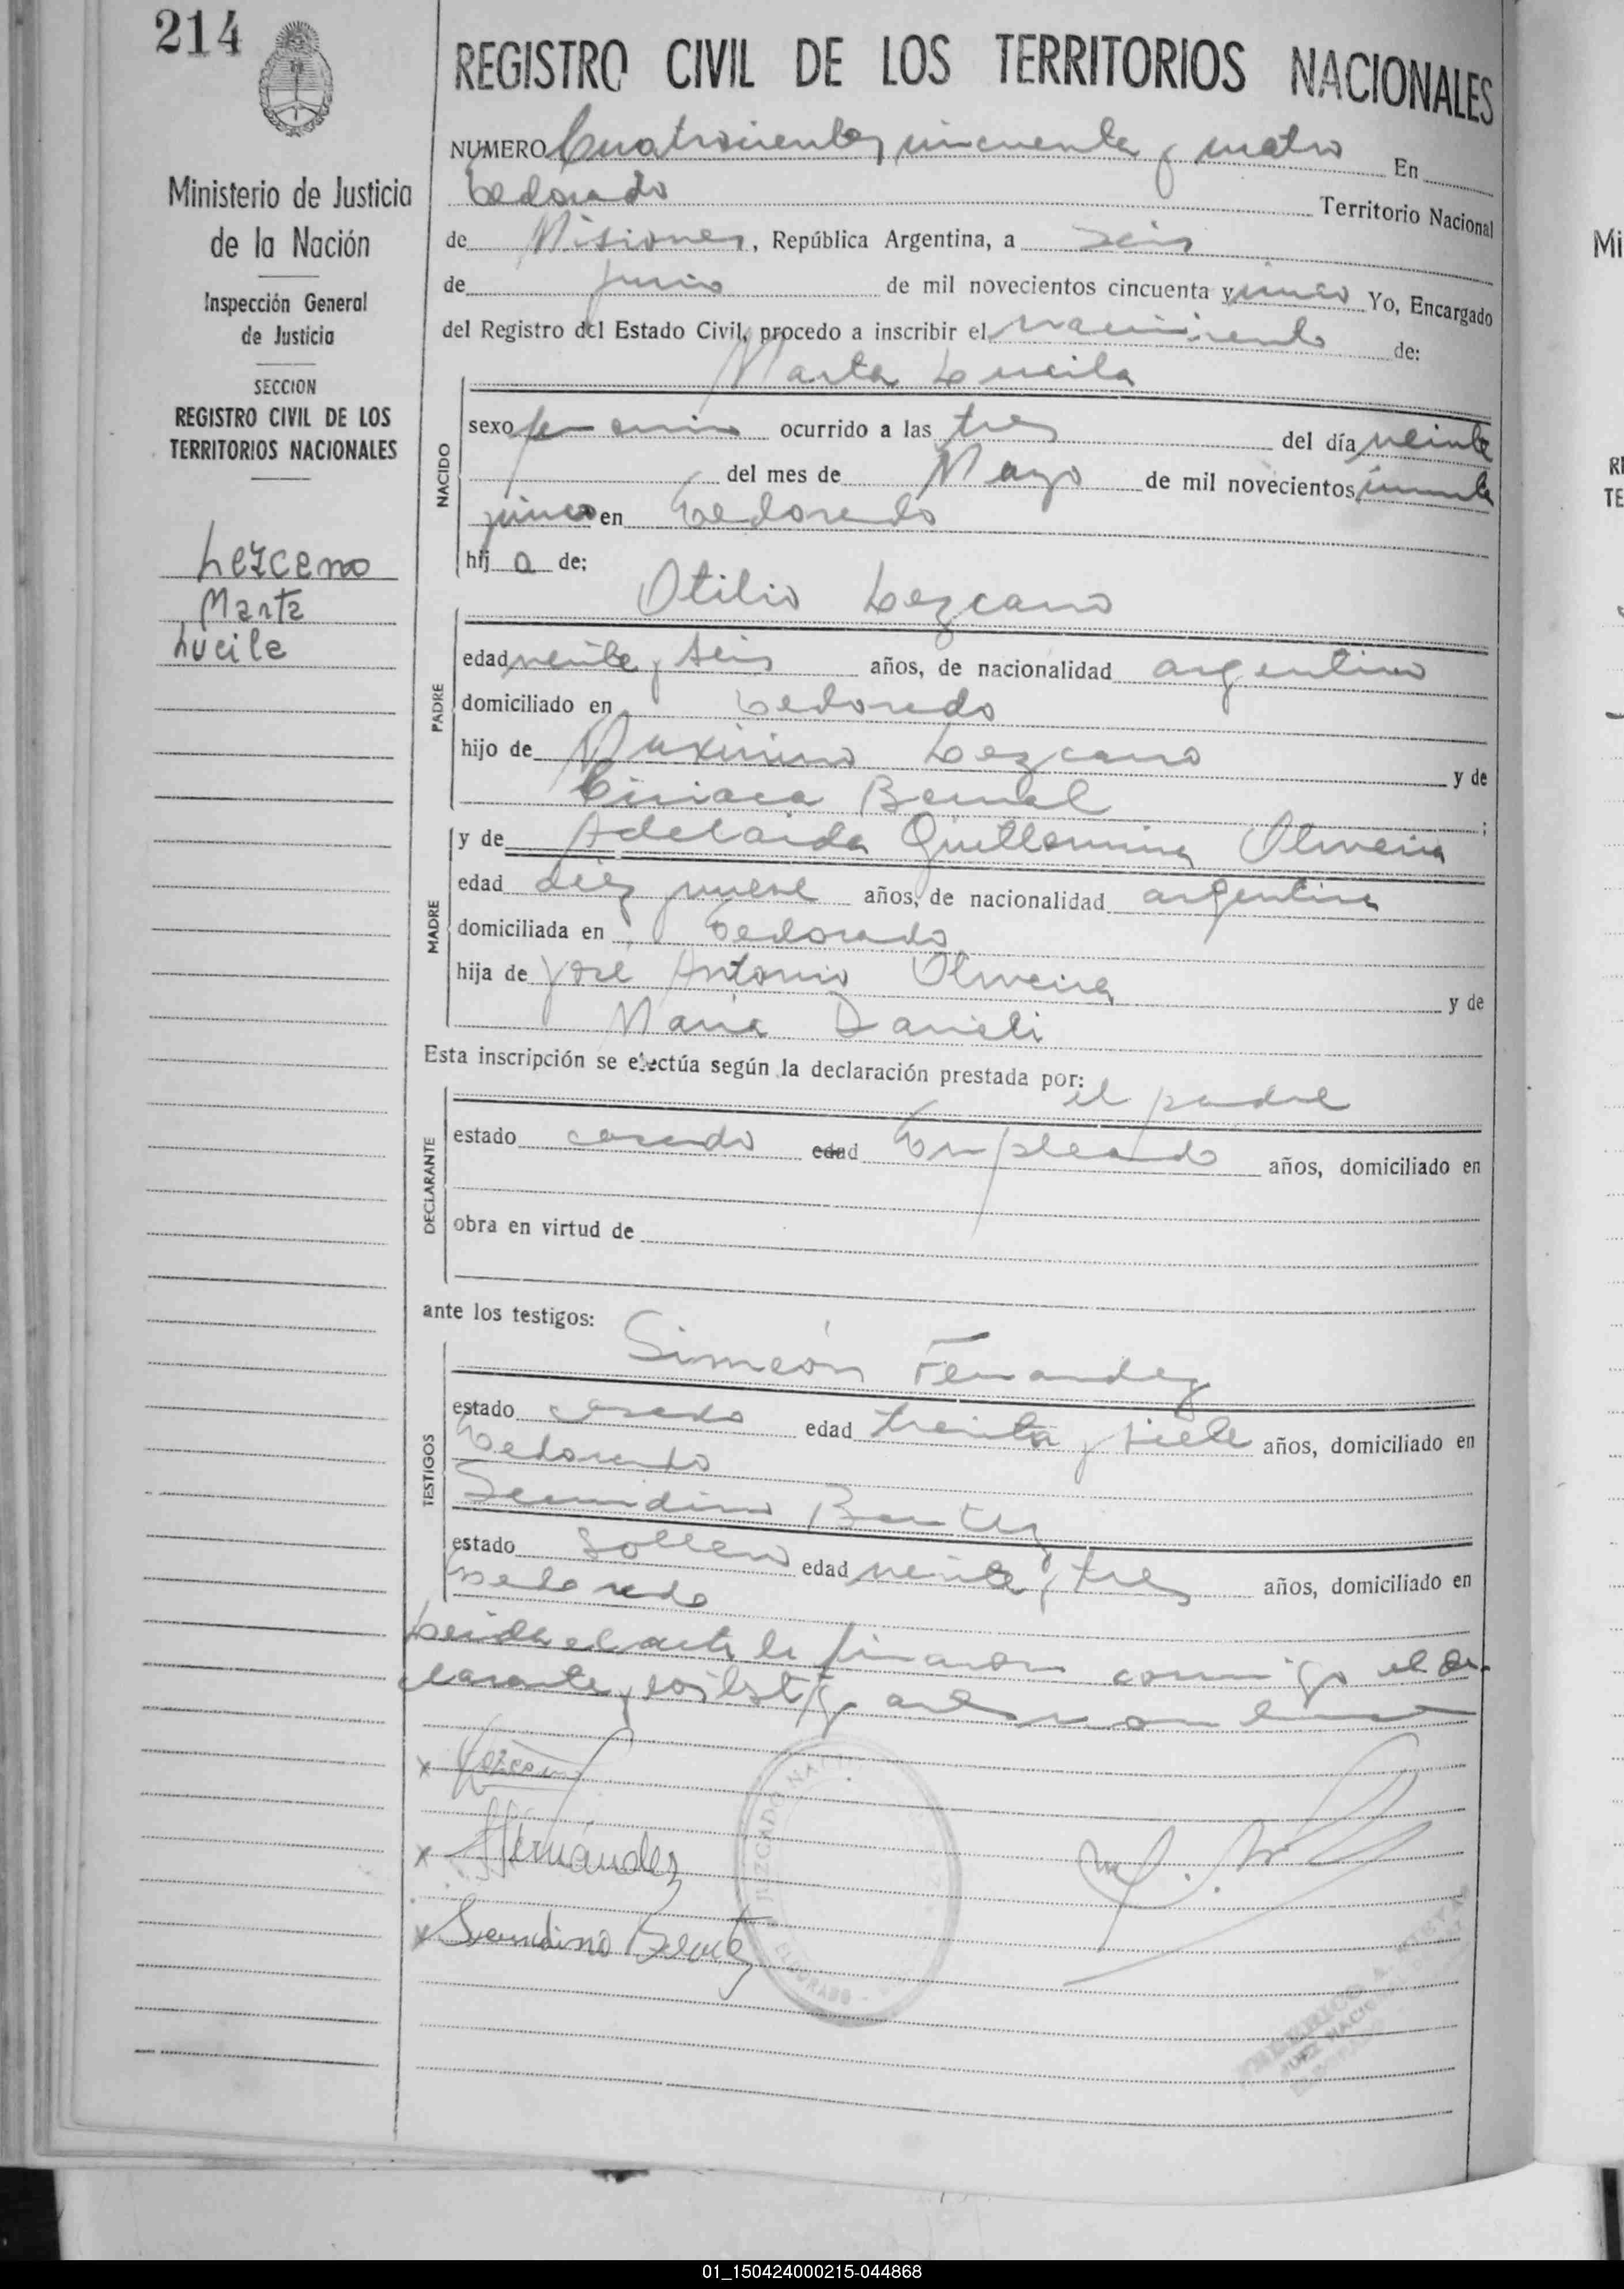 214
REGISTRO CIVIL DE LOS TERRITORIOS NACIONALES
Ministerio de Justicia
de la Nación
Inspección General
de Justicia
SECCION
REGISTRO CIVIL DE LOS
TERRITORIOS NACIONALES
Lezcano
Marta
Lucila
NUMERO Cuatrocientos cincuenta y cuatro En
Eldorado Territorio Nacional
de Misiones, República Argentina, a seis
de junio de mil novecientos cincuenta y cinco Yo, Encargado
del Registro del Estado Civil, procedo a inscribir el nacimiento de:
Marta Lucila
NACIDO
sexo femenino ocurrido a las tres del día veinte
del mes de Mayo de mil novecientos cincuenta
y cinco en Eldorado
hij a de:
Otilio Lezcano
PADRE
edad veinte y seis años, de nacionalidad argentino
domiciliado en Eldorado
hijo de Maximino Lezcano y de
Ciriaca Bernal ;
MADRE
y de Adelaida Guillermina Oliveira
edad diez y nueve años, de nacionalidad argentina
domiciliada en Eldorado
hija de José Antonio Oliveira y de
Maria Danieli
Esta inscripción se efectúa según la declaración prestada por:
el padre
DECLARANTE
estado casado edad Empleado años, domiciliado en
obra en virtud de
ante los testigos:
Simeón Fernandez
TESTIGOS
estado casado edad treinta y siete años, domiciliado en
Eldorado
Secundino Benitez
estado soltero edad veinte y tres años, domiciliado en
Eldorado
Leida el acta la firmaron conmigo el de-
clarante y los testigos
x Lezcano
x Fernández
x Secundino Benitez
JUZGADO NACI
ELDORADO
JUEZ NACIO
Mi
01_150424000215-044868